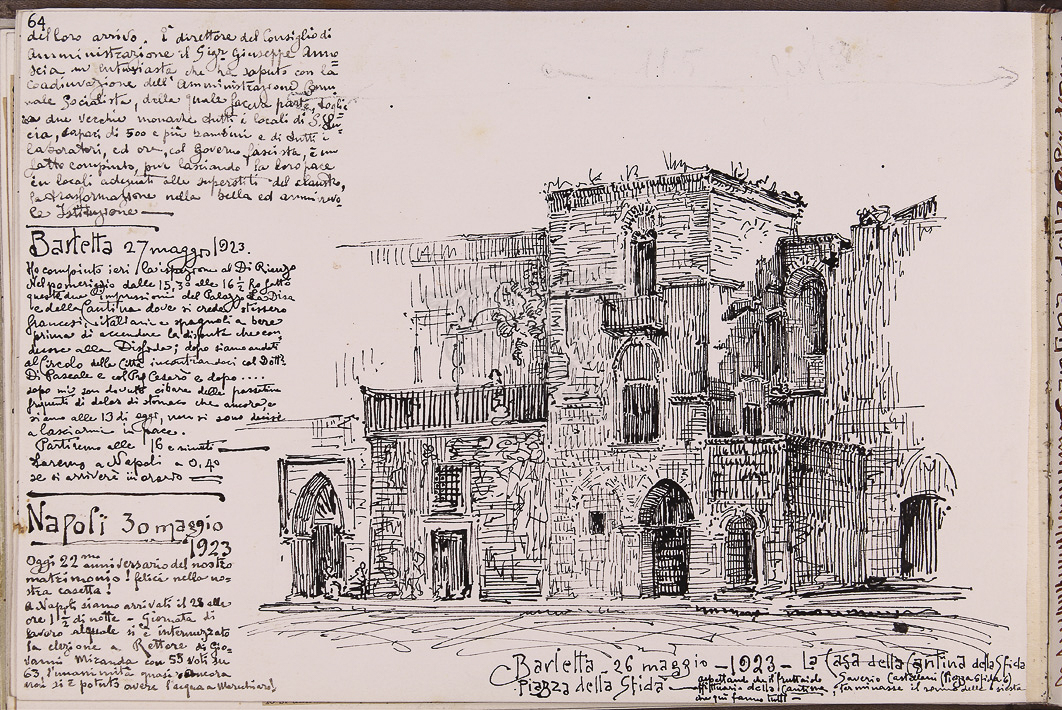 64
del loro arrivo. Il direttore del Consiglio di
Amministrazione il Sigr Giuseppe
scia un entusiasta che ha saputo con la
coadiuvazione dell'Amministrazione Comu=
nale Socialista, della quale faceva parte, togli=
a due vecchie monache tutti i locali di S. Lu=
cia, capaci di 500 e più bambini e di tutti i
laboratori, ed ora, col governo fascista, è un
fatto compiuto, pur lasciando la loro pace
in locali adeguati alle superstiti del claustro,
la trasformazione nella bella ed
le Istituzione
Barletta 27 maggio 1923.
Ho compiuto ieri la ispezione al Di Rienzo
Nel pomeriggio dalle 15,30 alle 16 ½ ho fatto
queste due impressioni del Palazzo
e della Cantina dove si crede stessero
francesi, italiani e spagnoli a bere
prima di accendere la disputa che con=
dusse alla Disfida; dopo siamo andati
al Circolo della Città incontrandoci col Dott.
Di Pascale e col Prof Cesaro e dopo ....
dopo mi son dovuto cibare delle
di dolor di stomaco che ancora, e
siamo alle 13 di oggi, non si sono decisi
a lasciarmi in pace.
Partiremo alle 16 e minuti
Saremo a Napoli a 0,40
se si arriverà in orario
Napoli 30 maggio
1923
Oggi 22mo anniversario del nostro
matrimonio! felici nella no=
stra casetta!
A Napoli siamo arrivati il 28 alle
ore 1 ½ di notte - Giornata di
lavoro al quale si è intermezzato
la elezione a Rettore di Gio=
vanni Miranda con 55 voti su
63, l'unanimità quasi. Ancora
non si è potuto avere l'acqua a Marechiaro!
Barletta, 26 maggio -1923- La Casa della Cantina della Sfida
Piazza della Sfida aspettando che il fruttaiolo Saverio Castellani (Piazza Sfida 6)
affittuario della Cantina, terminasse il sonno della siesta
che qui fanno tutti -